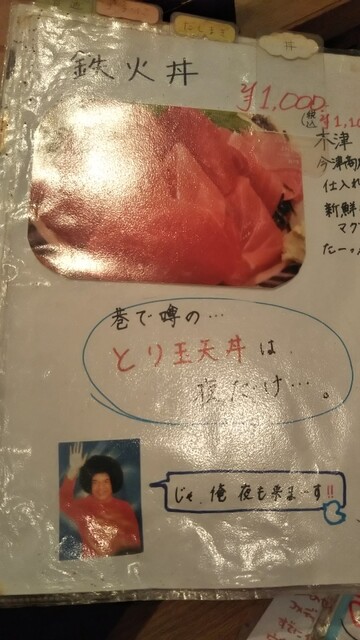 丼
鉄火丼
¥1,000
(税込
木津
仕入れ
新鮮
マグ
たーっ
巷で噂の…
とり玉天丼は
夜だけ…。
じゃ、俺 夜も来まーす!!